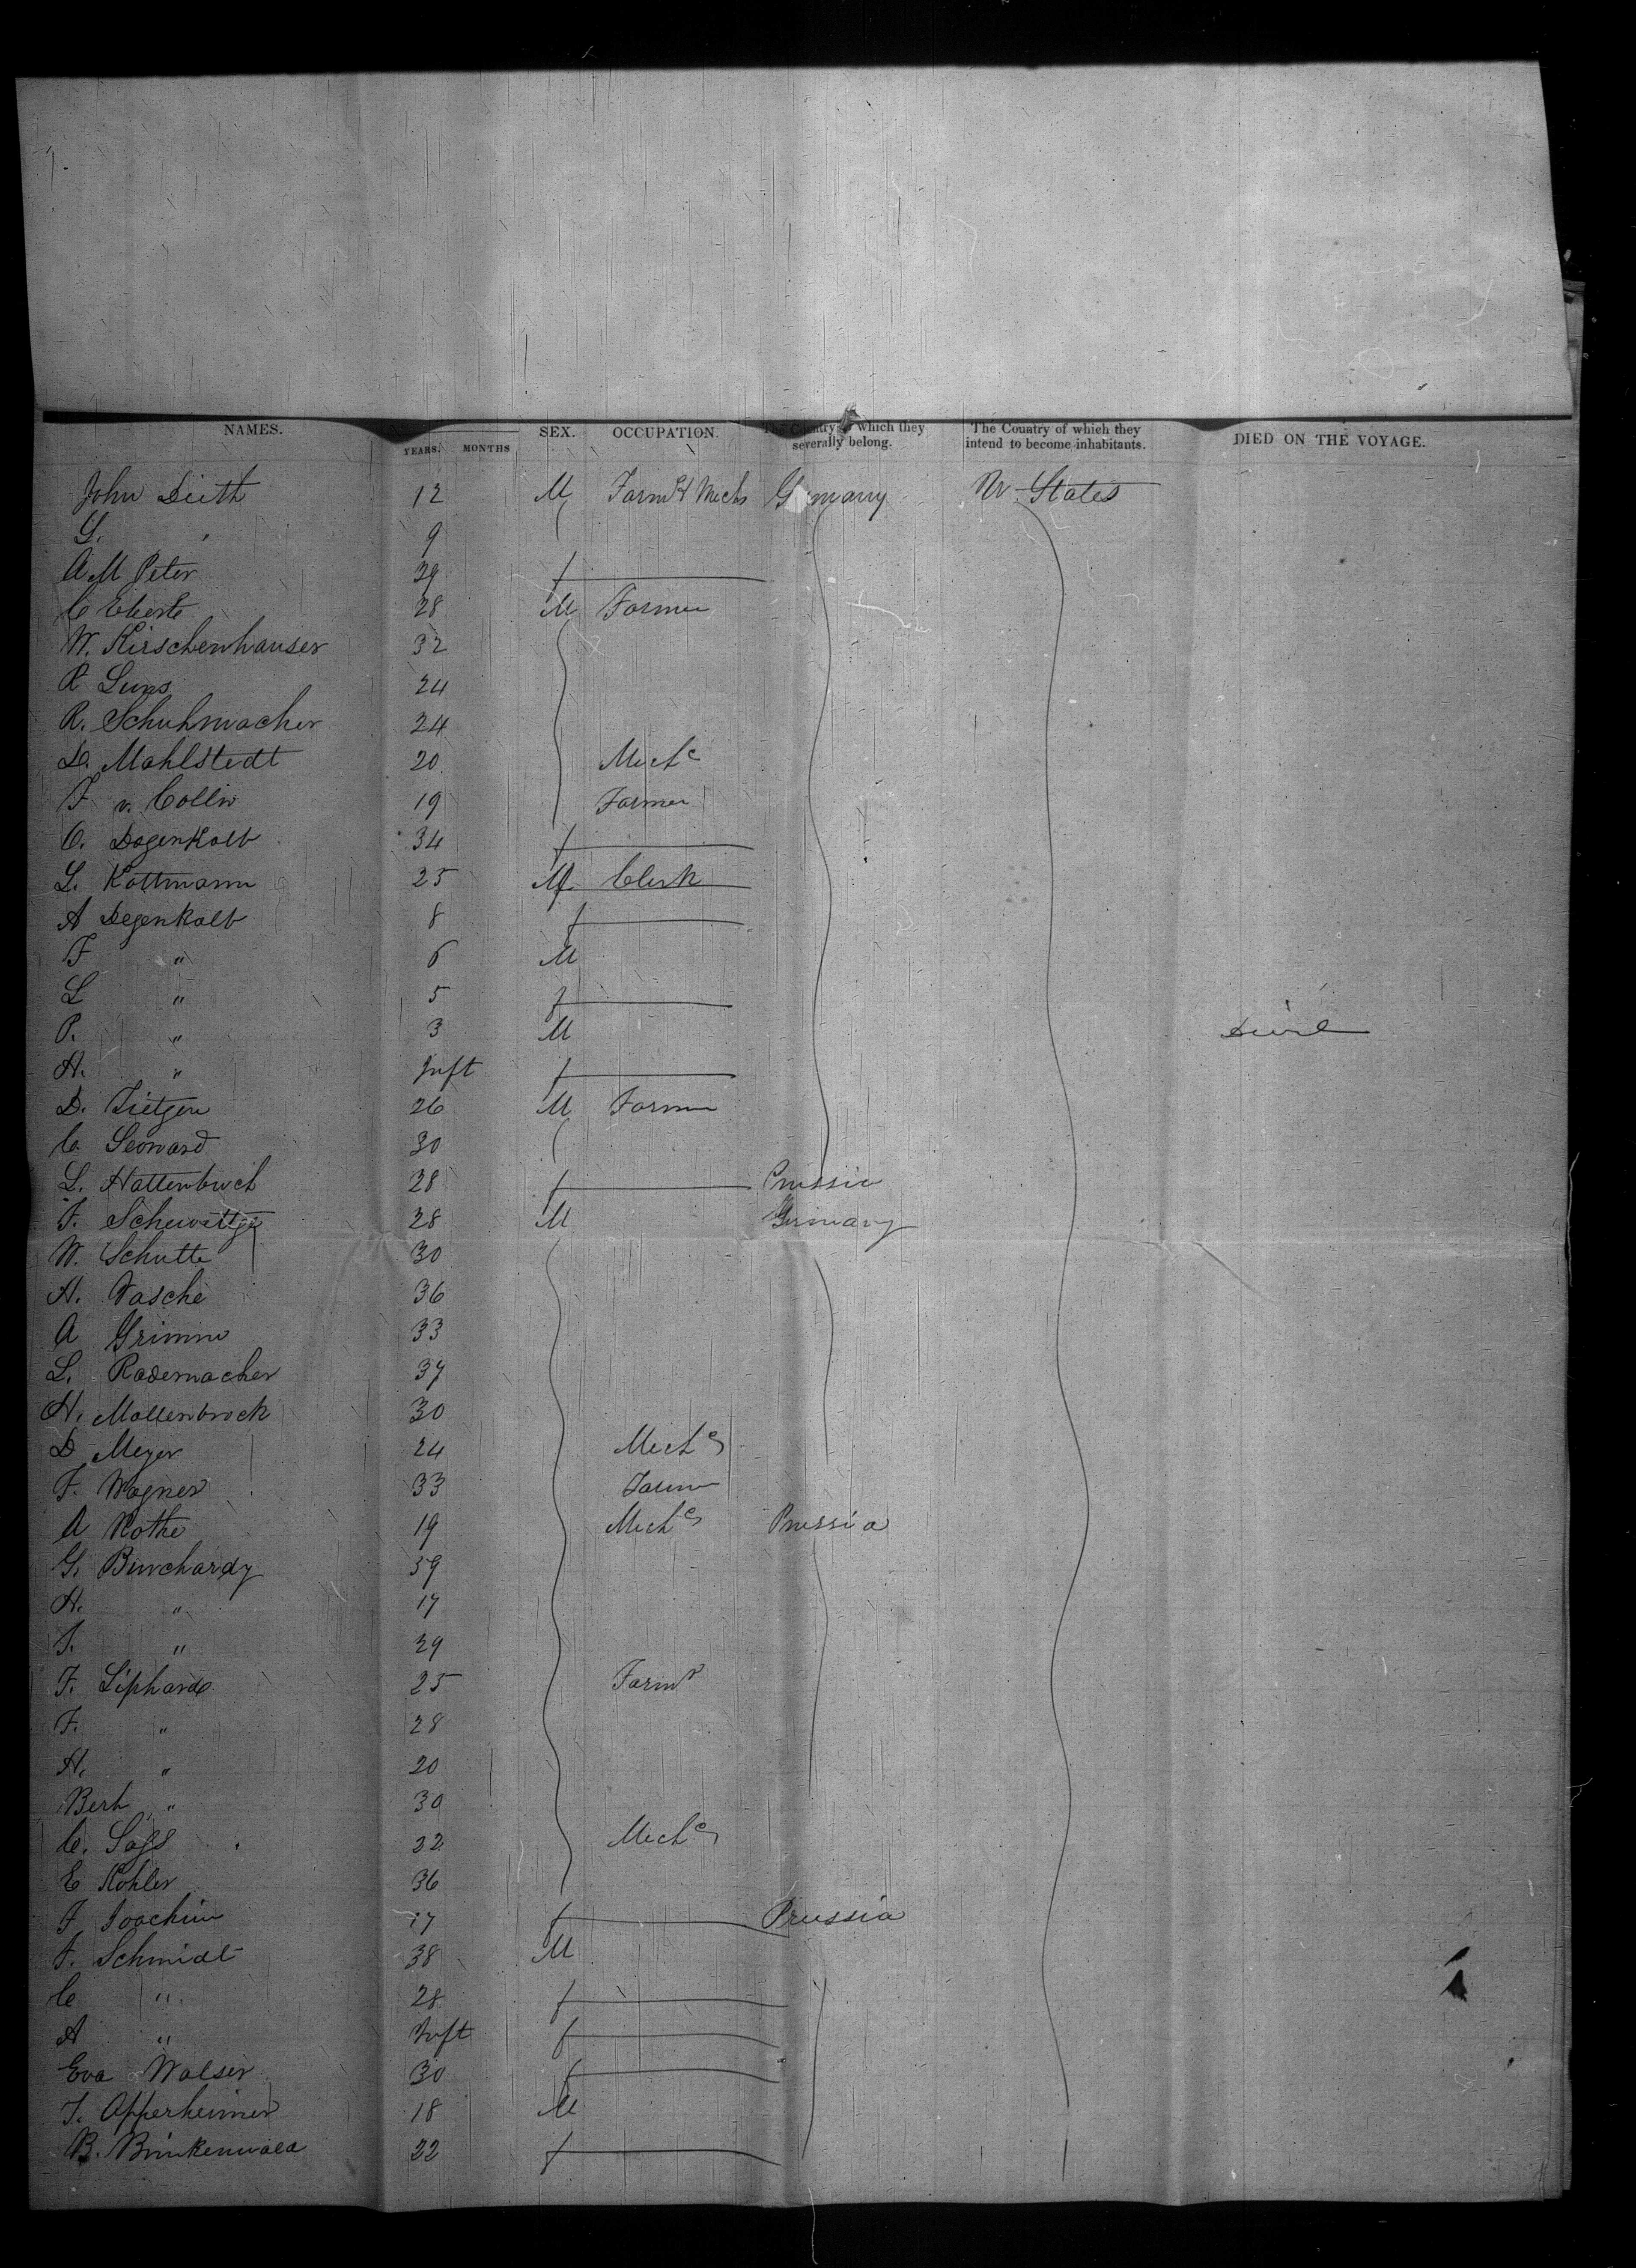 NAMES. YEARS. MONTHS SEX. OCCUPATION. The Country of which they severally belong. The Country of which they intend to become inhabitants. DIED ON THE VOYAGE.
John Dieth 12 M Farmr & Mechs Germany U States
G. " 9
A M Peter 29 f
C Eberle 28 M Farmer
W. Kirschenhauser 32
R 24
R. Schuhmacher 24
D. Mahlstedt 20 Mechc
F v. Collin 19 Farmer
C. Degenkolb 34 f
L. Kottmann 25 M Clerk
A Degenkolb 8 f
F " 6 M
L " 5 f
P. " 3 M died
A. " Inft f
D. Tietjen 26 M Farmer
C. Leonard 30
L. Hattenbach 28 f Prussia
F. 28 M Germany
W. Schutte 30
H. Wasche 36
A Grimm 33
L. Rademacher 37
H. Mollenbrock 30
D Meyer 24 Mechc
F. Wagner 33 Farmer
A Rothe 19 Mechc Prussia
G. Burchardy 59
H. " 17
F. " 29
F. Liphard 25 Farmr
F. " 28
H. " 20
Berh " 30
C. 32 Mechc
E Kohler 36
F Joachim 17 f Prussia
F. Schmidt 38 M
C " 28 f
A " Inft f
Eva Walser 30 f
F. Apperheimer 18 M
B. Brinkenwald 22 f